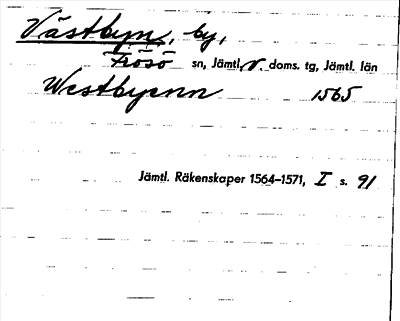 Västbyn, by,
Frösö sn, Jämtl. v. doms. tg, Jämtl. län
Westbyenn 1565
Jämtl. Räkenskaper 1564–1571, I s. 91